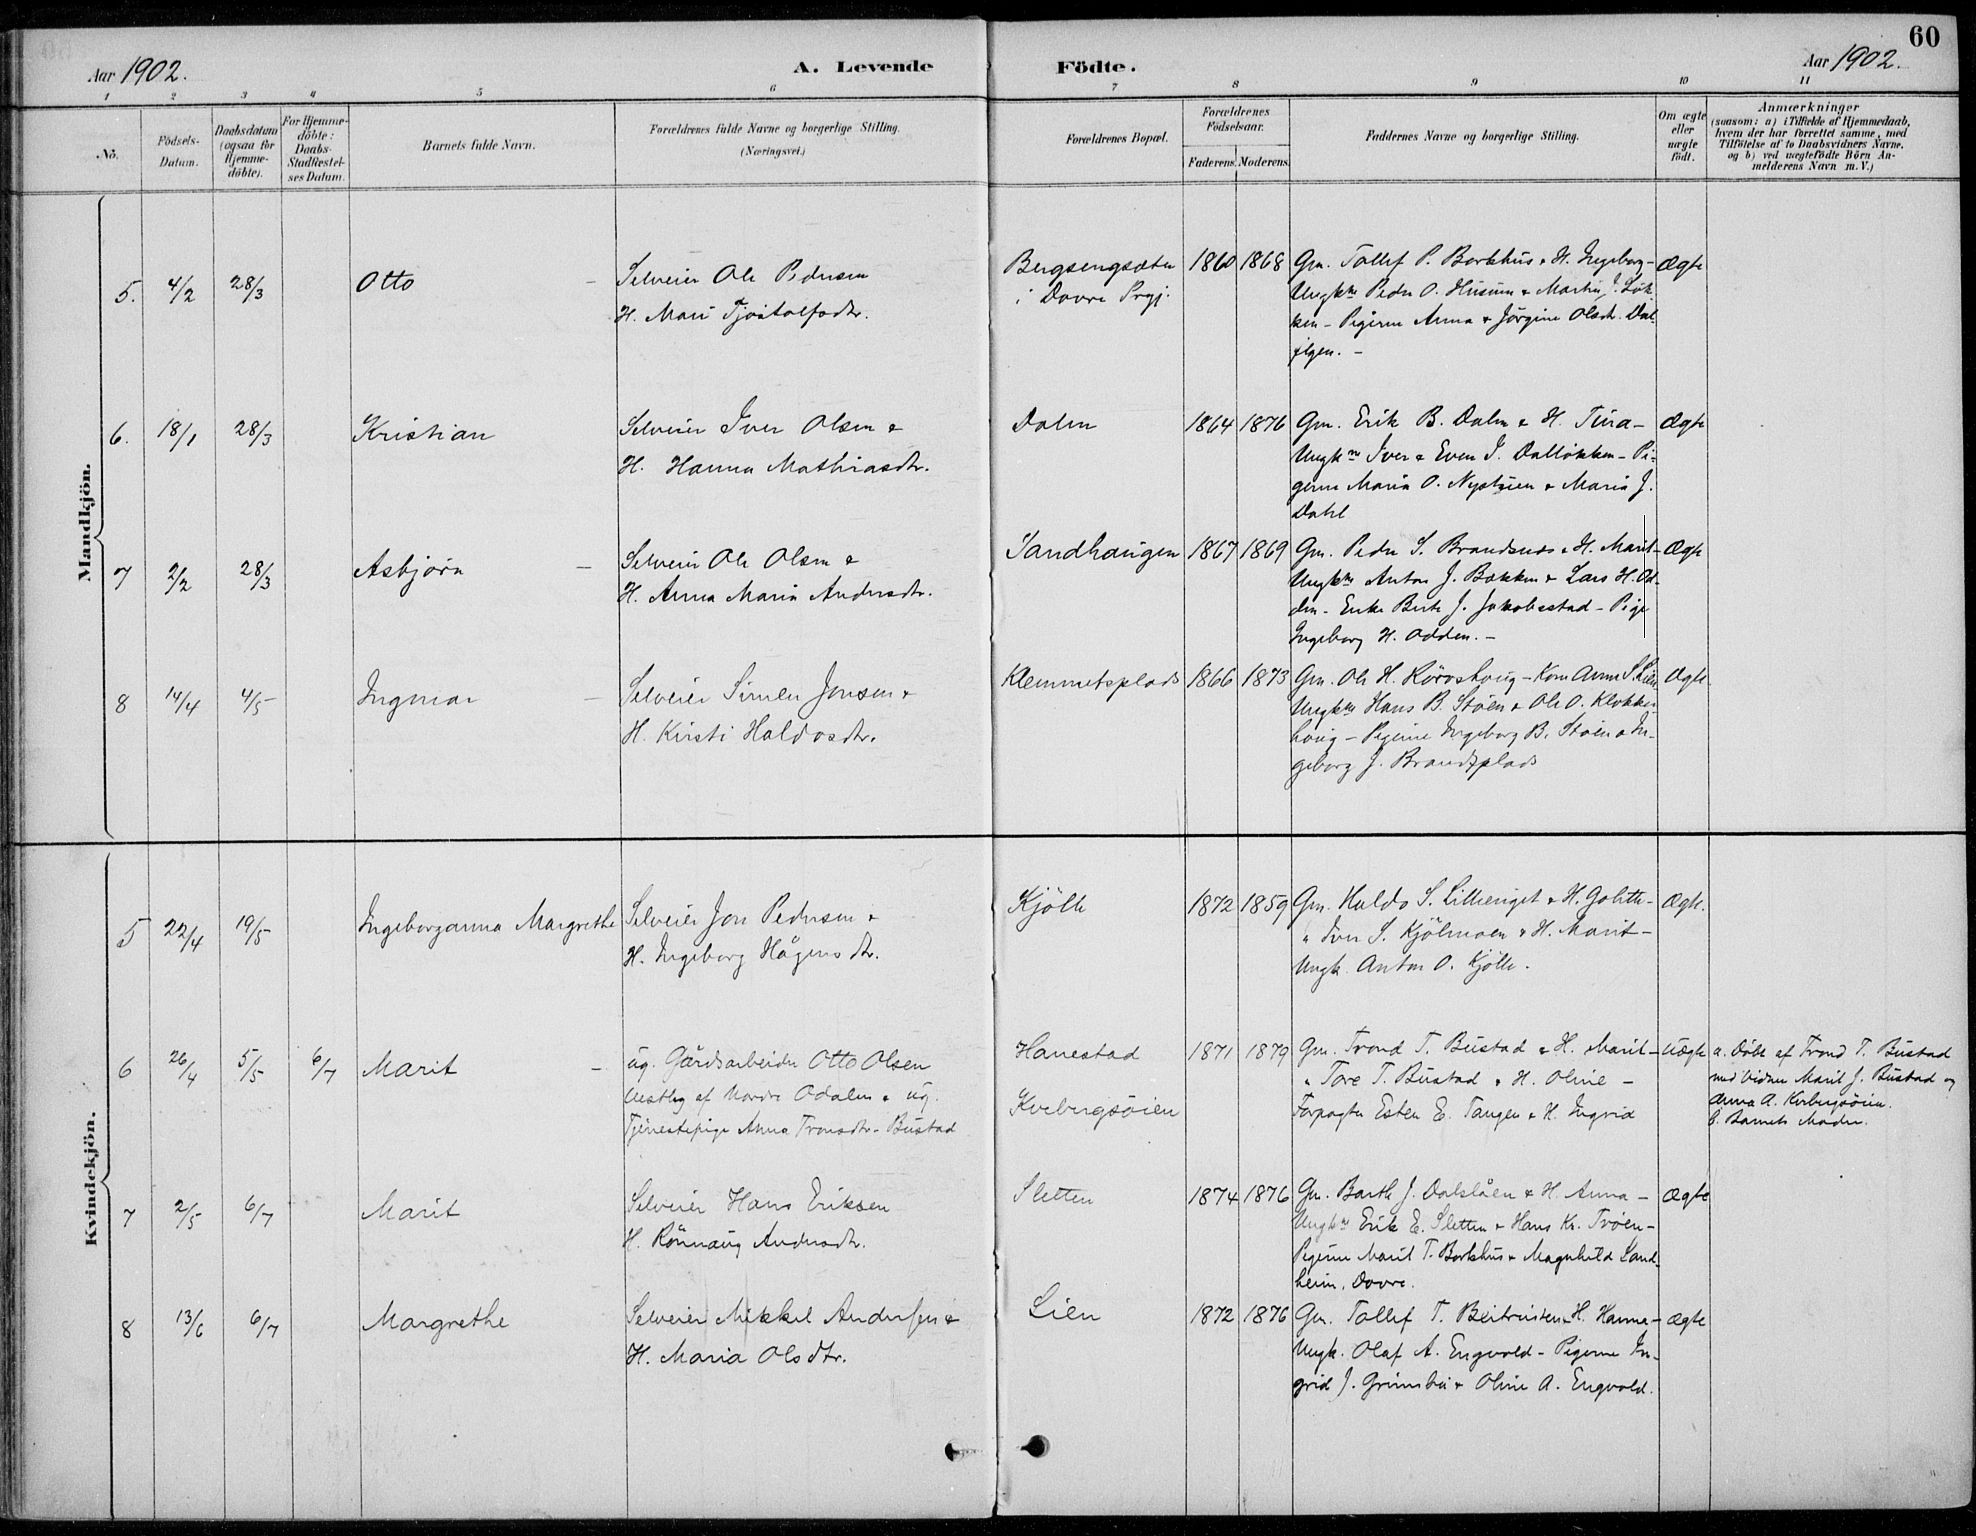 60
Aar 1902.
A. Levende Födte.
Aar 1902.
1 2 3 4 5 6 7 8 9 10 11
No.
Födsels-
Datum.
Daabsdatum
(ogsaa for
Hjemme-
döbte).
For Hjemme-
döbte:
Daabs-
Stadfæstel-
ses Datum.
Barnets fulde Navn.
Forældrenes fulde Navne og borgerlige Stilling.
(Næringsvei.)
Forældrenes Bopæl.
Forældrenes
Födselsaar.
Faderens. Moderens.
Faddernes Navne og borgerlige Stilling.
Om ægte
eller
uægte
födt.
Anmærkninger
(saasom: a) i Tilfælde af Hjemmedaab,
hvem der har forrettet samme, med
Tilföielse af to Daabsvidners Navne,
og b) ved uægtefödte Börn An-
melderens Navn m. V.)
Mandkjön.
5. 4/2 28/3 Otto
Selveier Ole Pedersen
H. Mari Tjostolfsdtr.
Bergsengsæter
i Dovre Prgj.
1860 1868
Gm. Tollef P. Borkhus & H. Ingeborg -
Ungkne Peder O. Husum & Martin J. Løk-
ken - Pigerne Anna & Jørgine Olsdtr. Dal-
flyen. -
Ægte
6. 18/1 28/3 Kristian
Selveier Iver Olsen &
H. Hanna Mathiasdtr.
Dalen
1864 1876
Gm. Erik B. Dalen & H. Tina -
Ungkne Iver & Even J. Dalløkken - Pi-
gerne Maria O. Nystuen & Maria J.
Dahl
Ægte
7 2/2 28/3 Asbjørn
Selveier Ole Olsen &
H. Anna Maria Andersdtr.
Sandhaugen
1867 1869
Gm. Peder S. Brandsnes & H. Marit -
Ungkne Anton J. Bakken & Lars H. Od-
den - Enke Berte J. Jakobsstad - Pige
Ingeborg H. Odden. -
Ægte
8 14/4 4/5 Ingmar
Selveier Simen Jonsen &
H. Kirsti Haldosdtr.
Klemmetsplads
1866 1873
Gm. Ole H. Rörvshoug - Kone Anne S. Lien
Ungkne Hans B. Støen & Ole O. Klokker-
houg - Pigerne Ingeborg B. Støen & In-
geborg J. Brandtplads
Ægte
Kvindekjön.
5 22/4 19/5 Ingeborganna Margrethe
Selveier Jon Pedersen &
H. Ingeborg Hågensdtr.
Kjölle
1872 1859
Gm. Haldo S. Lilleenget & H. Golette -
" Iver S. Kjölmoen & H. Marit -
Ungk. Anton O. Kjölle.
Ægte.
6 26/4 5/5 6/7 Marit
ug. Gårdsarbeider Otto Olsen
Vestby af Nordre Odalen & ug.
Tjenestepige Anna Tronsdtr. Bustad
Hanestad
Kvebergsöien
1871 1879
Gm. Trond T. Bustad & H. Marit -
" Tore T. Bustad & H. Oline -
Forpagter Esten E. Tangen & H. Ingrid
Uægte
a. Döbt af Trond T. Bustad
med Vidner Marit J. Bustad og
Anna A. Kvebergsöien.
b. Barnets Moder.
7 2/5 6/7 Marit
Selveier Hans Eriksen
H. Rönnaug Andersdtr.
Sletten
1874 1876
Gm. Barth J. Dalslåen & H. Anna -
Ungkne Erik E. Sletten & Hans Kr. Trøen -
Pigerne Marit T. Borkhus & Magnhild Sand-
heim, Dovre.
Ægte
8 13/6 6/7 Margrethe
Selveier Mikkel Andersen &
H. Maria Olsdtr.
Lien
1872 1876
Gm. Tollef T. Beitrusten & H. Hanna -
Ungk. Olaf A. Engvold - Pigerne In-
grid J. Grimsbu & Oline A. Engvold.
Ægte